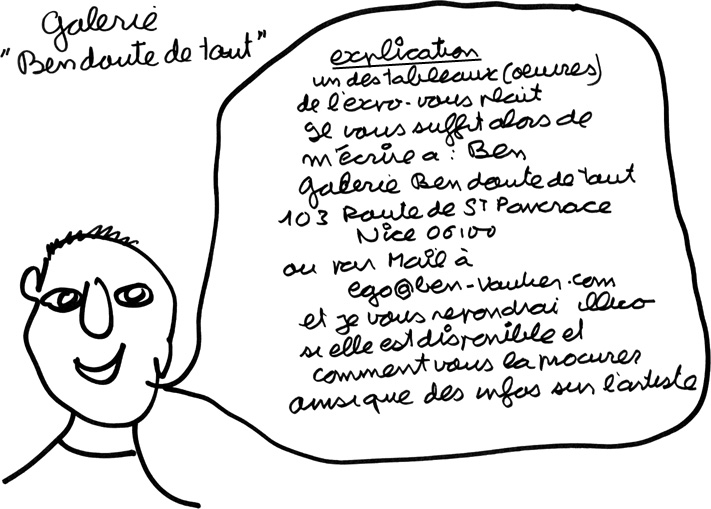 galerie
"Ben doute de tout"
explication
un des tableaux (oeuvres)
de l'expo - vous plait
Il vous suffit alors de
m'écrire a : Ben
galerie Ben doute de tout
103 Route de St Pancrace
Nice 06100
ou par Mail à
ego@ben-vautier.com
et je vous repondrai illico
si elle est disponible et
comment vous la procurer
ainsi que des infos sur l'artiste